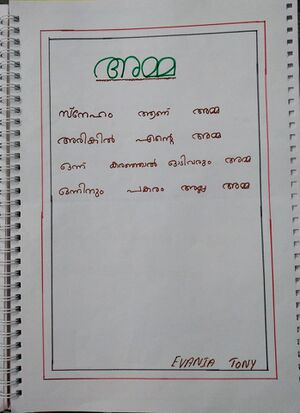 അമ്മ
സ്നേഹം ആണ് അമ്മ
അരികിൽ എന്റെ അമ്മ
ഒന്ന് കരഞ്ഞാൽ ഓടിവരും അമ്മ
ഒന്നിനും പകരം അല്ല അമ്മ
EVANIA TONY